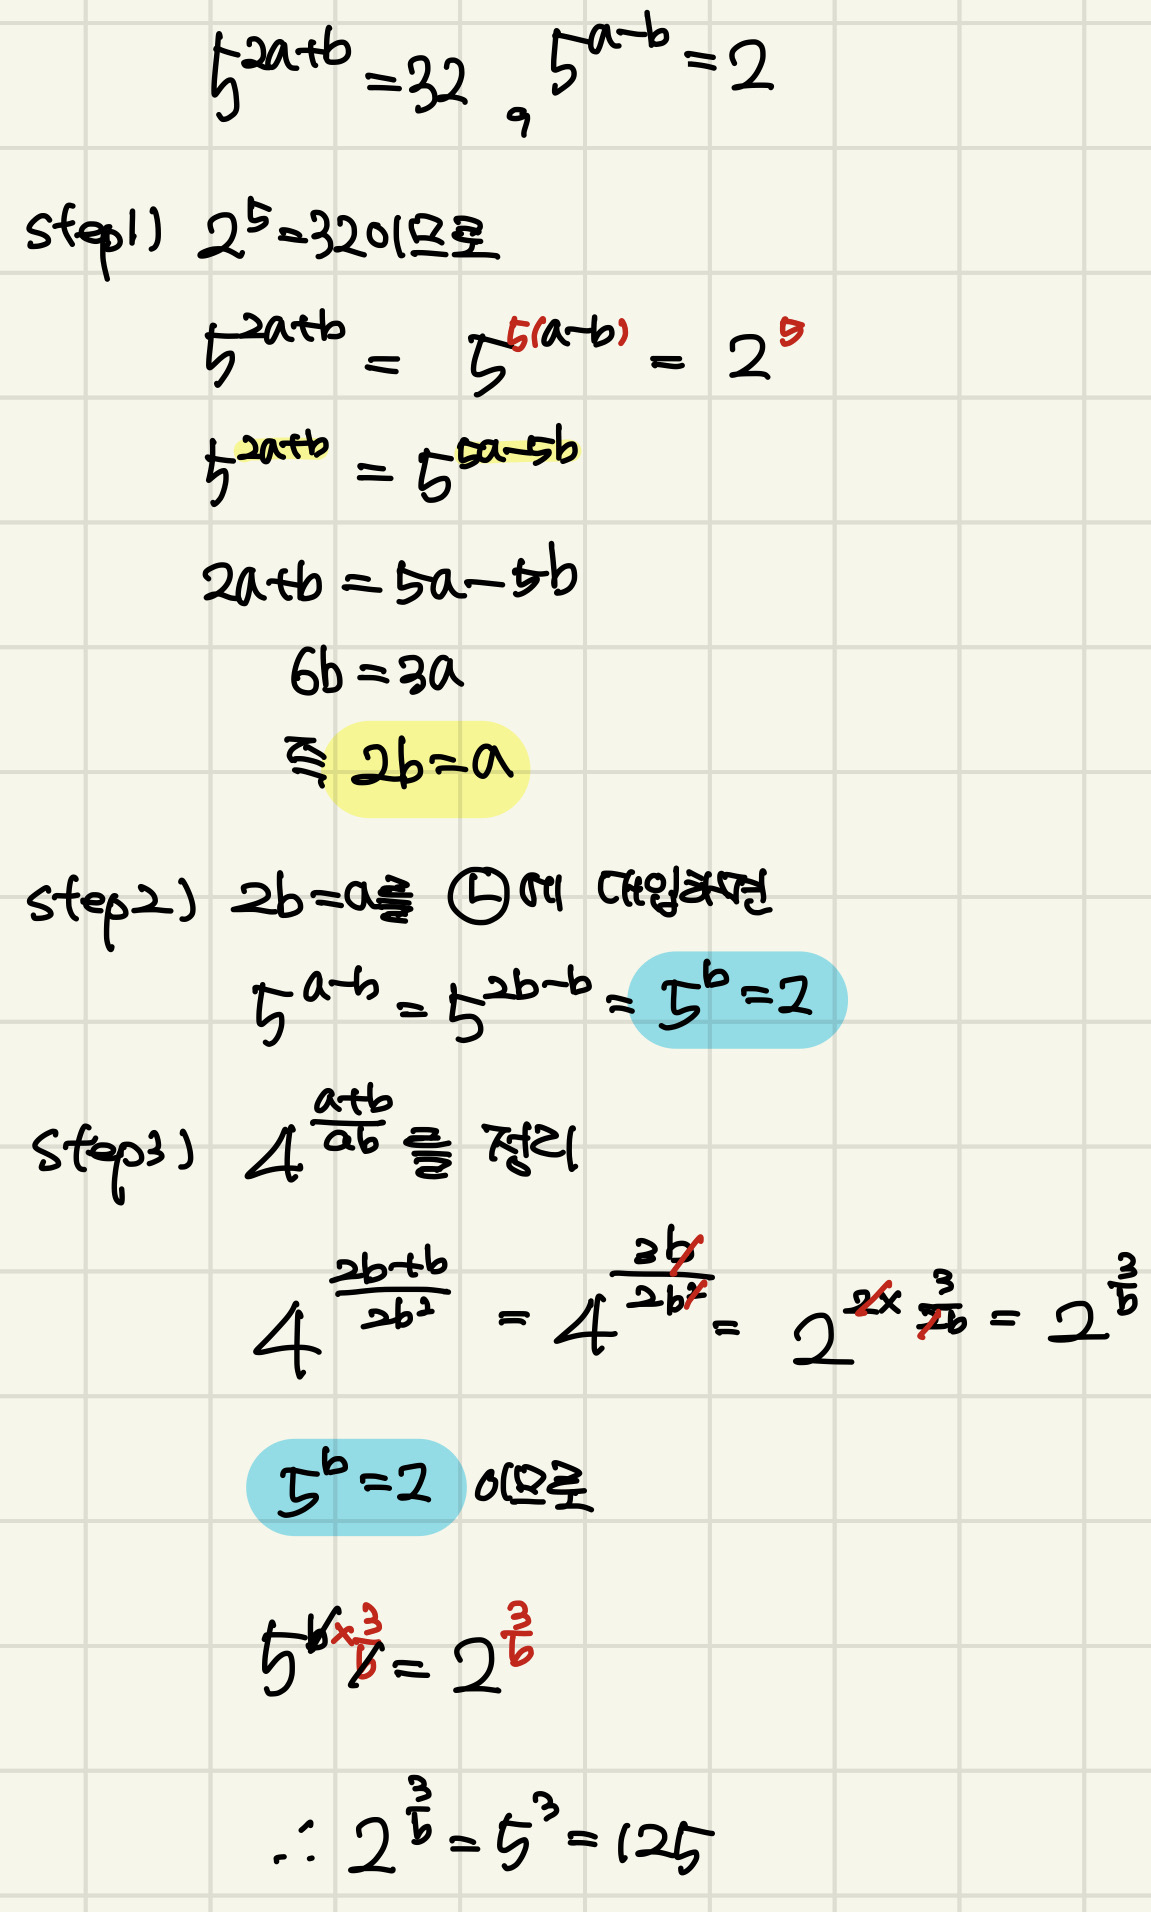 5^{2a+b} = 32 , 5^{a-b} = 2
step1) 2^5 = 32이므로
5^{2a+b} = 5^{5(a-b)} = 2^5
5^{2a+b} = 5^{5a-5b}
2a+b = 5a-5b
6b = 3a
즉 2b = a
step2) 2b=a를 ㉡에 대입하면
5^{a-b} = 5^{2b-b} = 5^b = 2
step3) 4^{\frac{a+b}{ab}}를 정리
4^{\frac{2b+b}{2b^2}} = 4^{\frac{3b}{2b^2}} = 2^{2×\frac{3}{2b}} = 2^{\frac{3}{b}}
5^b = 2 이므로
5^{b×\frac{3}{b}} = 2^{\frac{3}{b}}
∴ 2^{\frac{3}{b}} = 5^3 = 125